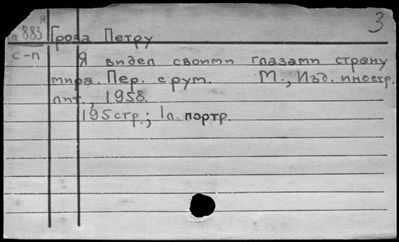 3
я
п 883 Гроза Петру
с-п Я видел своими глазами страну
мира. Пер. с рум. М., Изд. иностр.
лит., 1958.
195 стр.; 1 л. портр.